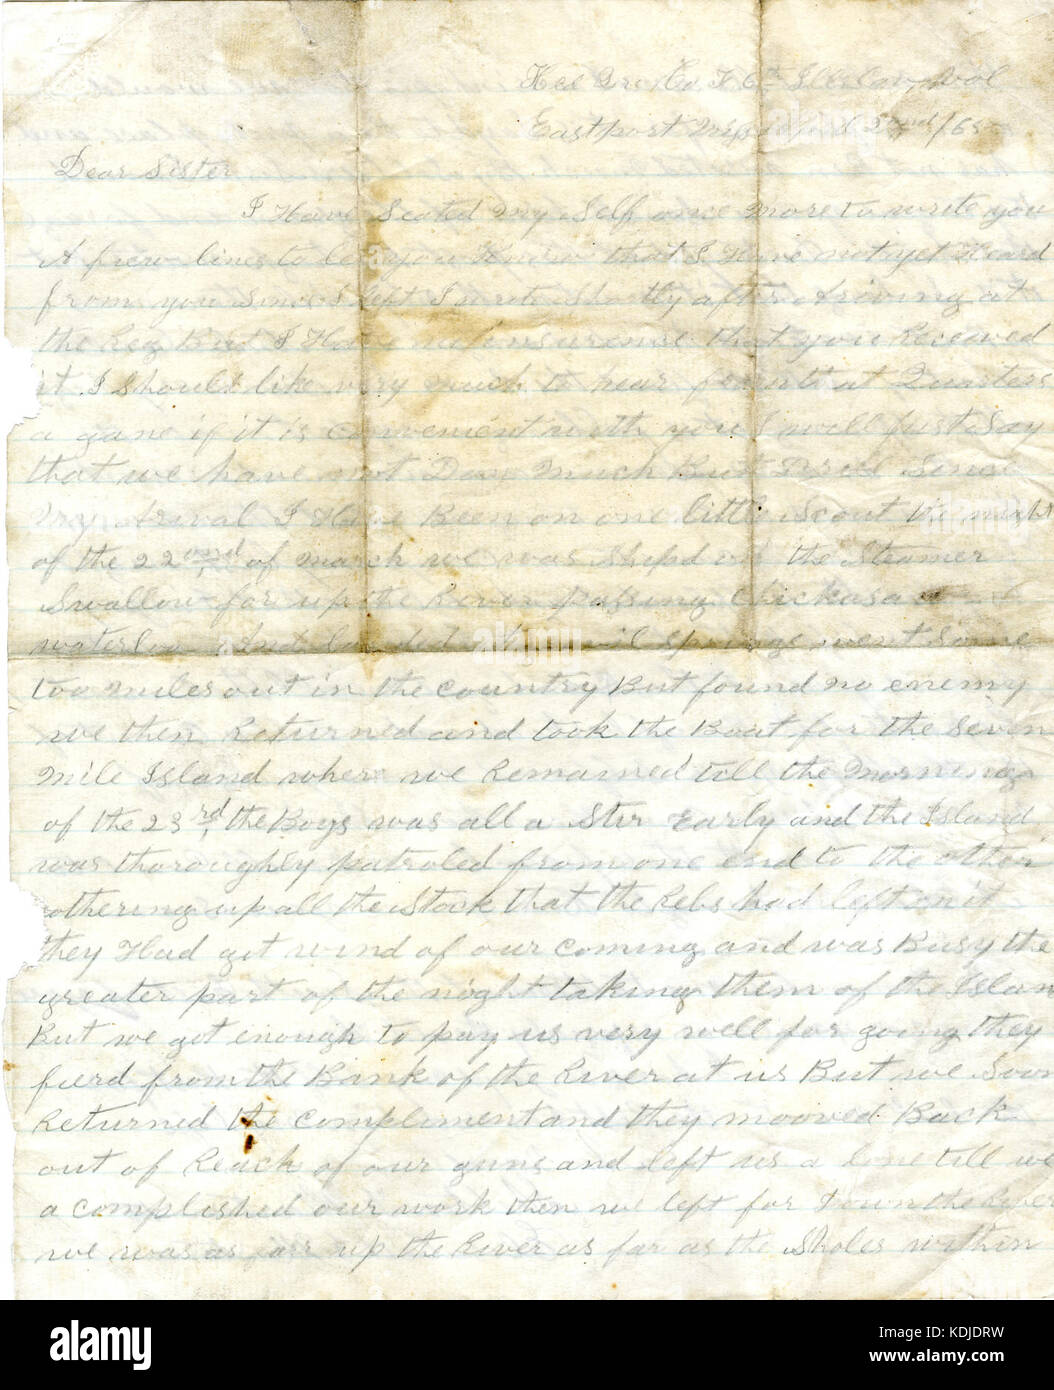 Hed Qrs Co F 6th Ills Cav Vol
Eastport Miss 2nd /65
Dear Sister
I Have Seated My Self once More to write you
A few lines to let you Know that I Have not yet Heard
from you Since I left I wrote Shortly after Ariving at
the Reg But I Have no insurence that you Receaved
it I Should like very much to hear from that Quarters
a gane if it is convenient with you I will just Say
that we have not Don Much But Drill Since
My Arival I Have Been on one little Scout the night
of the 22nd of March we was Shipd on the Steamer
Swallow far up the River passing Chickasaw &
waterloo And landed springs went Some
too miles out in the country But found no enemy
we then Returned and took the Boat for the Seven
Mile Island where we Remained till the Morning
of the 23rd the Boys was all a Stir Early and the Island
was thoroughly patroled from one end to the other
othering up all the Stock that the Rebs had left on it
they Had got wind of our coming and was Busy the
greater part of the night taking them of the Islan
But we got enough to pay us very well for going they
fierd from the Bank of the River at us But we Soon
Returned the compliment and they mooved Back
out of Reach of our guns and left us a lone till we
a complished our work then we left for Down the River
we was as farr up the River as far as the Sholes within
alamy
KDJDRW
www.alamy.com